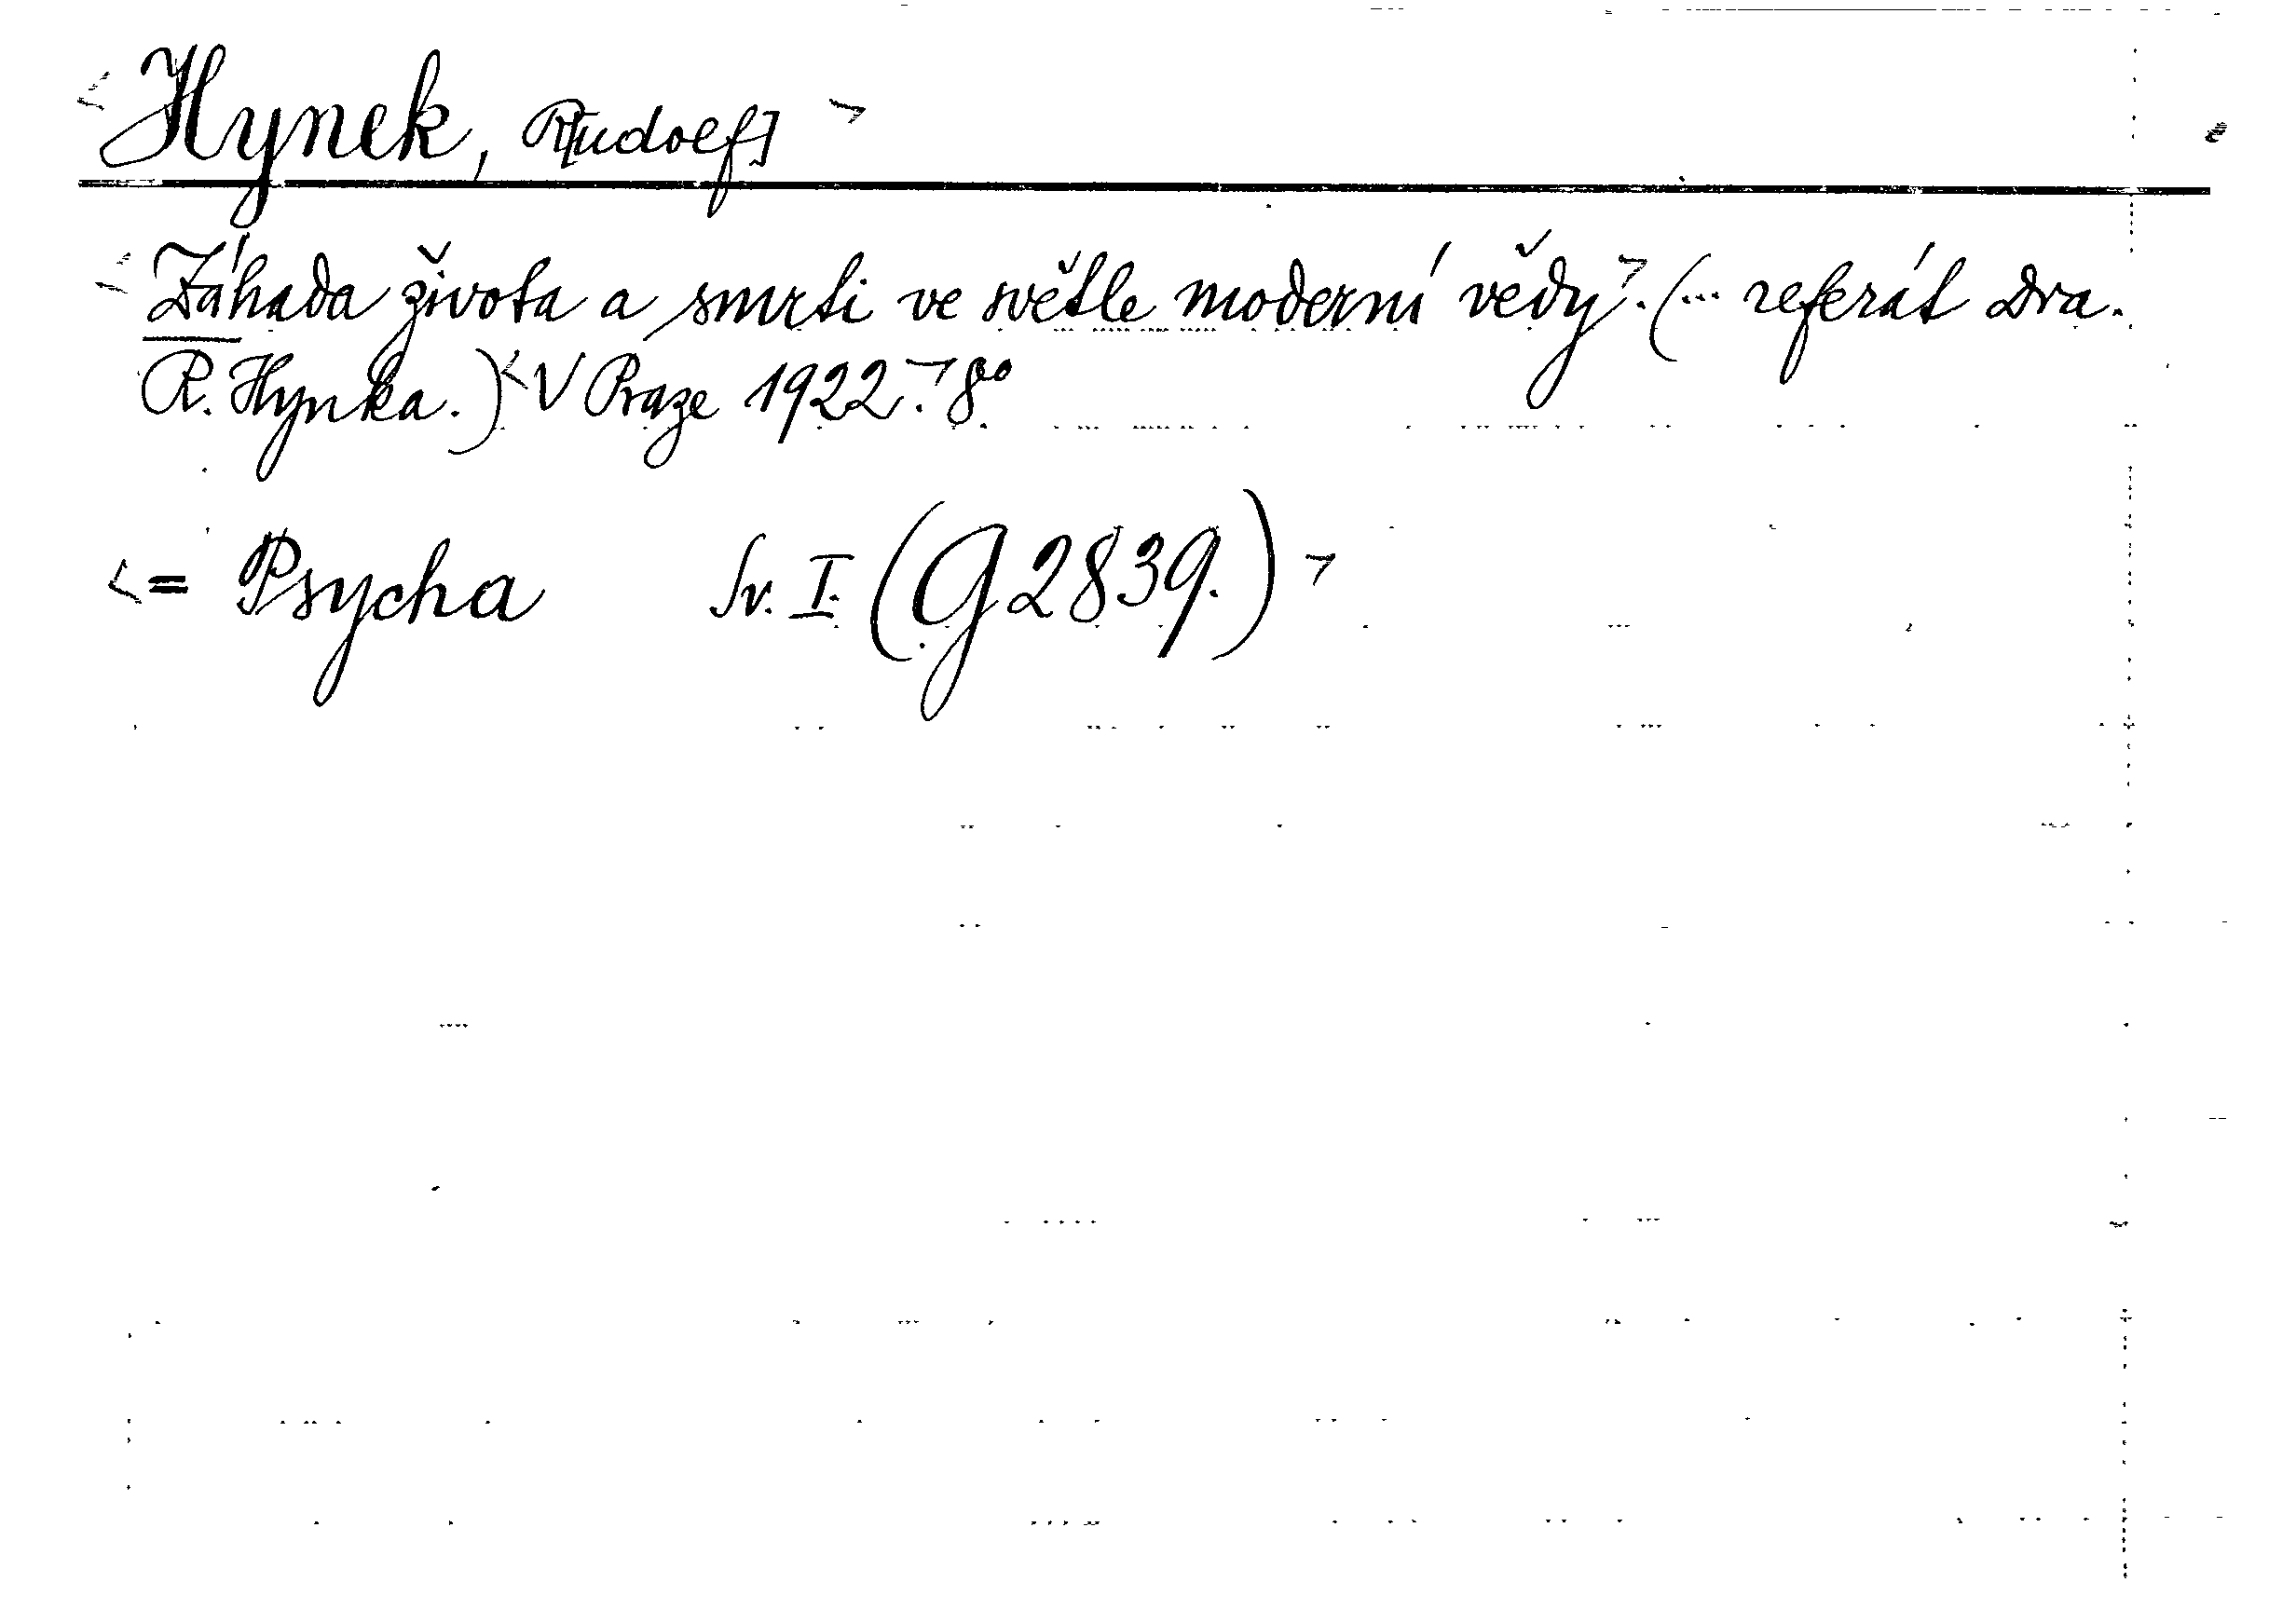 <Hynek, R[udolf]>
<Záhada života a smrti ve světle moderní vědy>. (... referát Dra.
R. Hynka.) <V Praze 1922.> 8°
<= Psycha Sv. I. (G 2839.)>